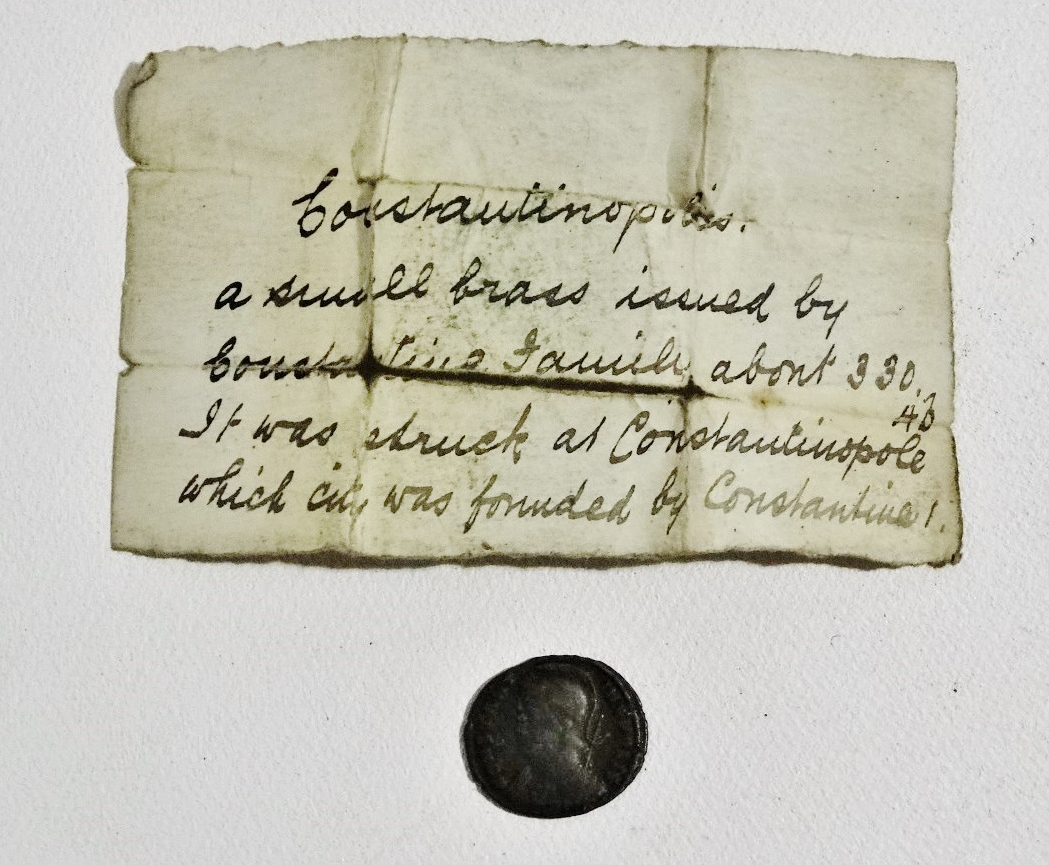 Constantinopolis.
a small brass issued by
Constantine Family about 330.
It was struck at Constantinople
which city was founded by Constantine 1.